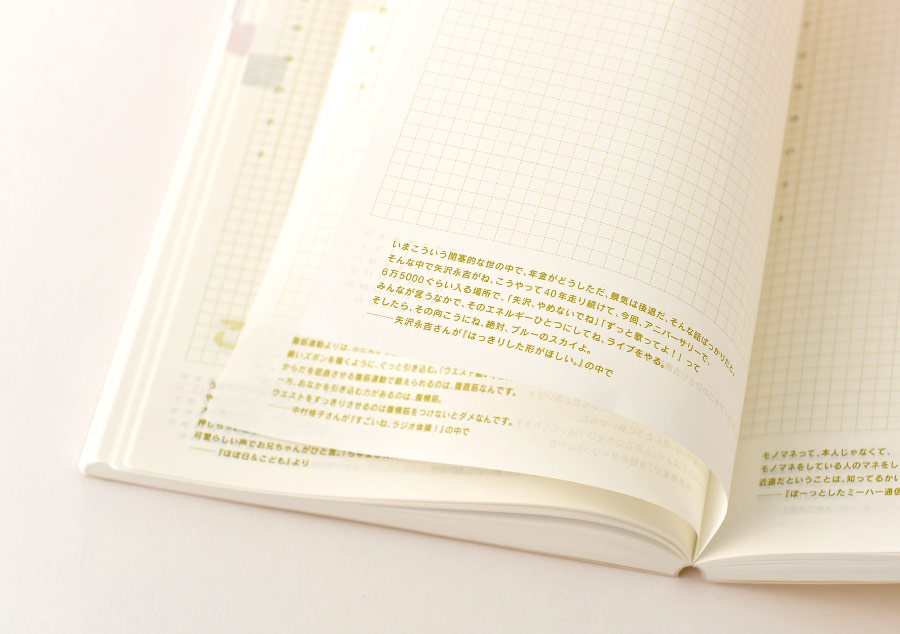 いまこういう閉塞的な世の中で、年金がどうしただ、景気は後退だ、そんな話ばっかりだと。
そんな中で矢沢永吉がね、こうやって40年走り続けて、今回、アニバーサリーで、
6万5000ぐらい入る場所で、「矢沢、やめないでね」「ずっと歌ってよ!」って
みんなが言うなかで、そのエネルギーひとつにしてね、ライブをやる。
そしたら、その向こうにね、絶対、ブルーのスカイよ。
——矢沢永吉さんが『はっきりした形がほしい。』の中で
腹筋運動よりは、
細いズボンを履くように、ぐっと引き込む。「ウエスト
からだを屈曲させる腹筋運動で鍛えられるのは、腹直筋なんです。
一方、おなかを引き込む力があるのは、腹横筋。
ウエストをすっきりさせるのは腹横筋をつけないとダメなんです。
——中村格子さんが『すごいね、ラジオ体操!』の中で
可愛らしい声でお兄ちゃんがひと言。
——『ほぼ日&こども』より
モノマネって、本人じゃなくて、
モノマネをしている人のマネをし
近道だということは、知ってるかい
——『ぼーっとしたミーハー通信